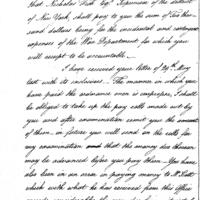 that Nicholas Fish Esqr. Supervisor of the district
of New York, shall pay to you the sum of Six thou-
sand dollars being for the incidental and contingent
expenses of the War Department for which you
will except to be accountable.
I have received your letter of 29th. May
last with its inclosures. The manner in which you
have paid the ordnance men is imperfect, I shall
be obliged to take up the pay rolls made out by
you and after examination remit you the amount
of them, in future you will send on the rolls for
any examination and that the money due thereon
may be advanced before you pay them. You have
also been in an error in paying money to Mr.
which with what he has received from this Office